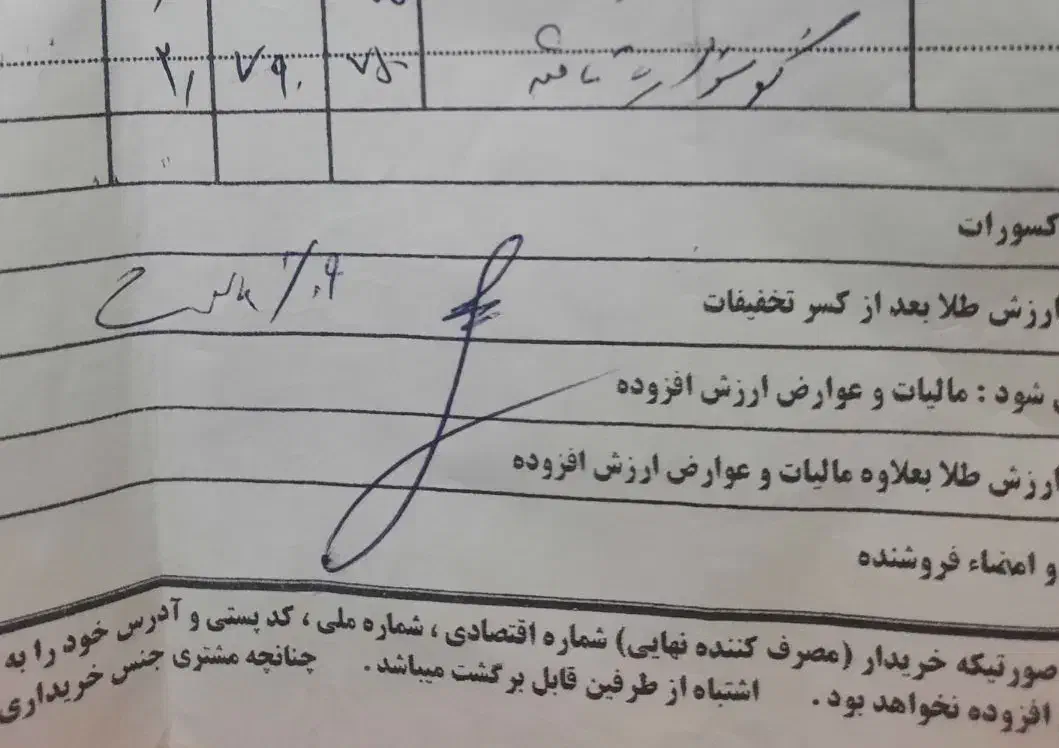 ۷۵۰ ۷۹۰ ۲/
کسورات
ارزش طلا بعد از کسر تخفیفات
شود : مالیات و عوارض ارزش افزوده
ارزش طلا بعلاوه مالیات و عوارض ارزش افزوده
و امضاء فروشنده
صورتیکه خریدار (مصرف کننده نهایی) شماره اقتصادی ، شماره ملی ، کد پستی و آدرس خود را به
افزوده نخواهد بود . اشتباه از طرفین قابل برگشت میباشد . چنانچه مشتری جنس خریداری